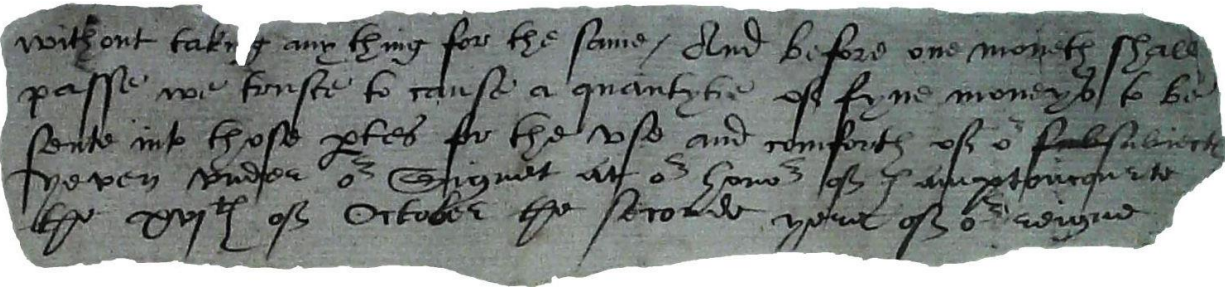 without takyng any thing for the same / And before one moneth shall
passe we truste to cause a quantytie of fyne moneys to be
sente into those ptes for the use and comforth of or subiects
yeven under or Signet at or honor of hamptoncourte
the xvjth of October the seconde yere of or reigne